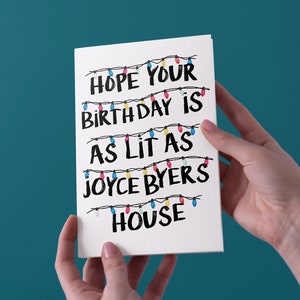 HOPE YOUR
BiRTHDAY iS
AS LiT AS
JOYCE BYERS
HOUSE